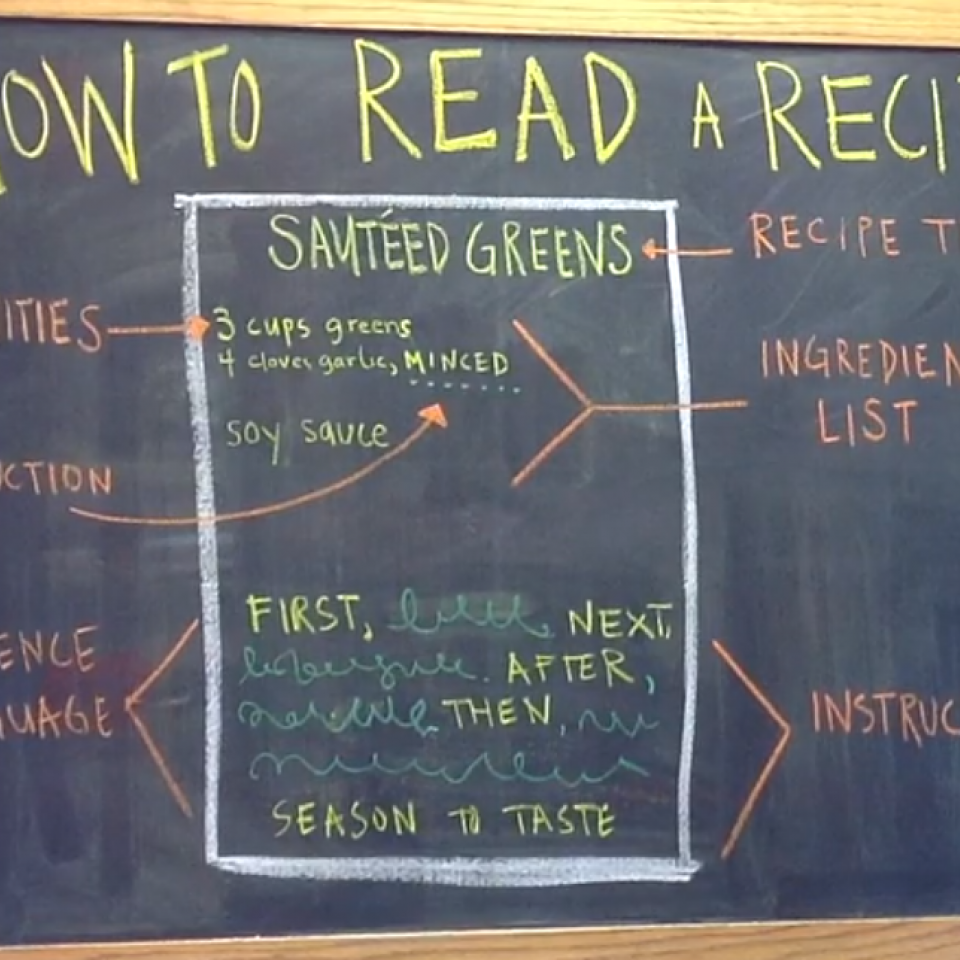 OW TO READ A RECI
SAUTÉED GREENS
RECIPE T
ITIES
3 cups greens
4 cloves garlic, MINCED
INGREDIEN
LIST
soy sauce
CTION
FIRST, NEXT,
ENCE
AFTER,
UAGE
THEN,
INSTRUC
SEASON TO TASTE